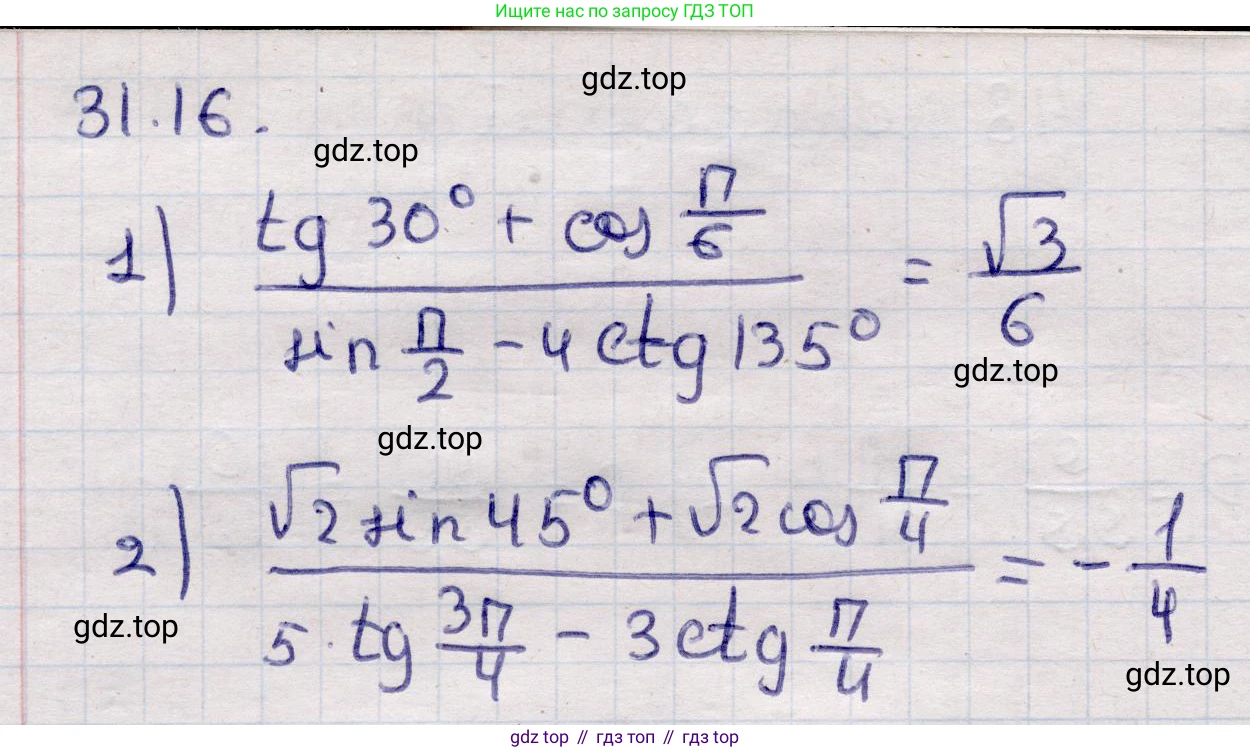 Ищите нас по запросу ГДЗ ТОП
gdz.top
31.16.
gdz.top
1) (tg 30° + cos π/6) / (sin π/2 - 4 ctg 135°) = √3/6
gdz.top
gdz.top
2) (√2 sin 45° + √2 cos π/4) / (5 · tg 3π/4 - 3 ctg π/4) = - 1/4
gdz.top
gdz.top
gdz top // гдз топ // gdz top